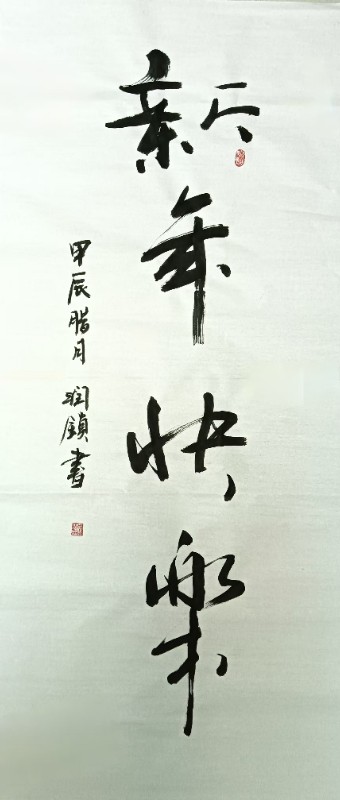 新年快樂
甲辰腊月 润鎮書